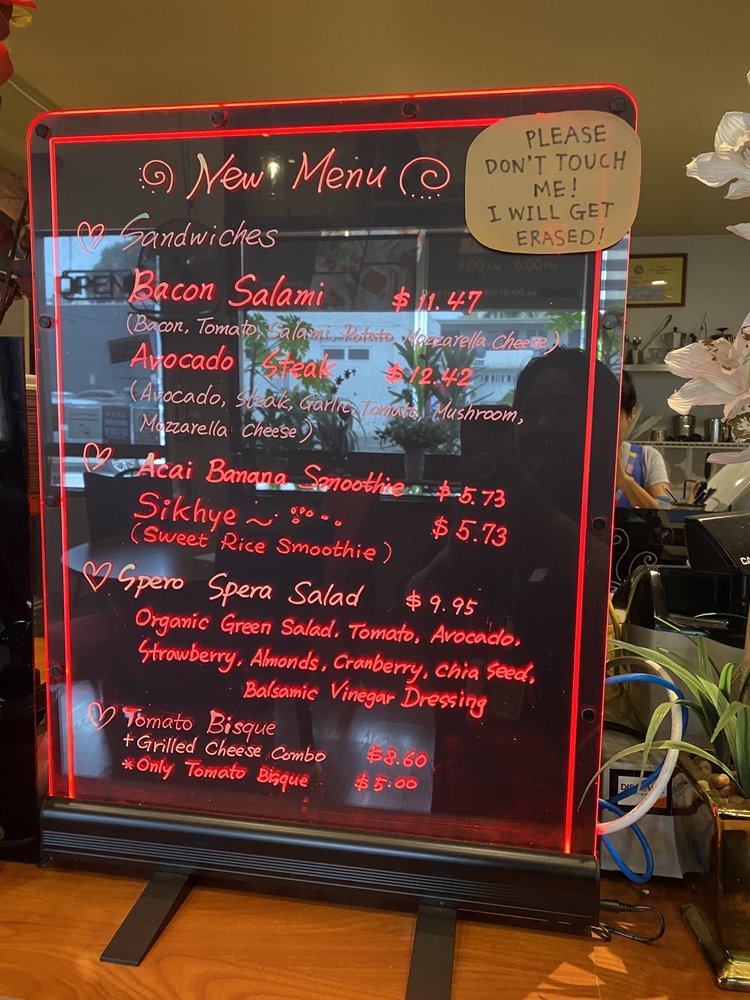 New Menu
PLEASE
DON'T TOUCH
ME!
I WILL GET
ERASED!
Sandwiches
Bacon Salami $11.47
(Bacon, Tomato, Salami, Potato Mozzarella Cheese)
Avocado Steak $12.42
(Avocado, Steak, Garlic, Tomato, Mushroom,
Mozzarella Cheese)
Acai Banana Smoothie $5.73
Sikhye $5.73
(Sweet Rice Smoothie)
Spero Spera Salad $9.95
Organic Green Salad, Tomato, Avocado,
Strawberry, Almonds, Cranberry, chia seed,
Balsamic Vinegar Dressing
Tomato Bisque
+Grilled Cheese Combo $8.60
*Only Tomato Bisque $5.00